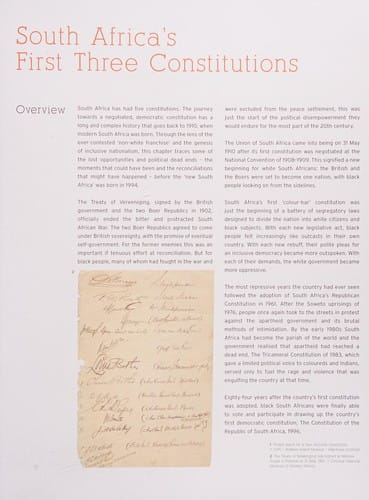 South Africa's
First Three Constitutions
Overview
South Africa has had five constitutions. The journey
towards a negotiated, democratic constitution has a
long and complex history that goes back to 1910, when
modern South Africa was born. Through the lens of the
ever contested 'non-white franchise' and the genesis
of inclusive nationalism, this chapter traces some of
the lost opportunities and political dead ends – the
moments that could have been and the reconciliations
that might have happened – before the 'new South
Africa' was born in 1994.
The Treaty of Vereeniging, signed by the British
government and the two Boer Republics in 1902,
officially ended the bitter and protracted South
African War. The two Boer Republics agreed to come
under British sovereignty, with the promise of eventual
self-government. For the former enemies this was an
important if tenuous effort at reconciliation. But for
black people, many of whom had fought in the war and
were excluded from the peace settlement, this was
just the start of the political disempowerment they
would endure for most of the 20th century.
The Union of South Africa came into being on 31 May
1910 after its first constitution was negotiated at the
National Convention of 1908-1909. This signified a new
beginning for white South Africans: the British and
the Boers were set to become one nation, with black
people looking on from the sidelines.
South Africa's first 'colour-bar' constitution was
just the beginning of a battery of segregatory laws
designed to divide the nation into white citizens and
black subjects. With each new legislative act, black
people felt increasingly like outcasts in their own
country. With each new rebuff, their polite pleas for
an inclusive democracy became more outspoken. With
each of their demands, the white government became
more oppressive.
The most repressive years the country had ever seen
followed the adoption of South Africa's Republican
Constitution in 1961. After the Soweto uprisings of
1976, people once again took to the streets in protest
against the apartheid government and its brutal
methods of intimidation. By the early 1980s South
Africa had become the pariah of the world and the
government realised that apartheid had reached a
dead end. The Tricameral Constitution of 1983, which
gave a limited political voice to coloureds and Indians,
served only to fuel the rage and violence that was
engulfing the country at that time.
Eighty-four years after the country's first constitution
was adopted, black South Africans were finally able
to vote and participate in drawing up the country's
first democratic constitution, The Constitution of the
Republic of South Africa, 1996.